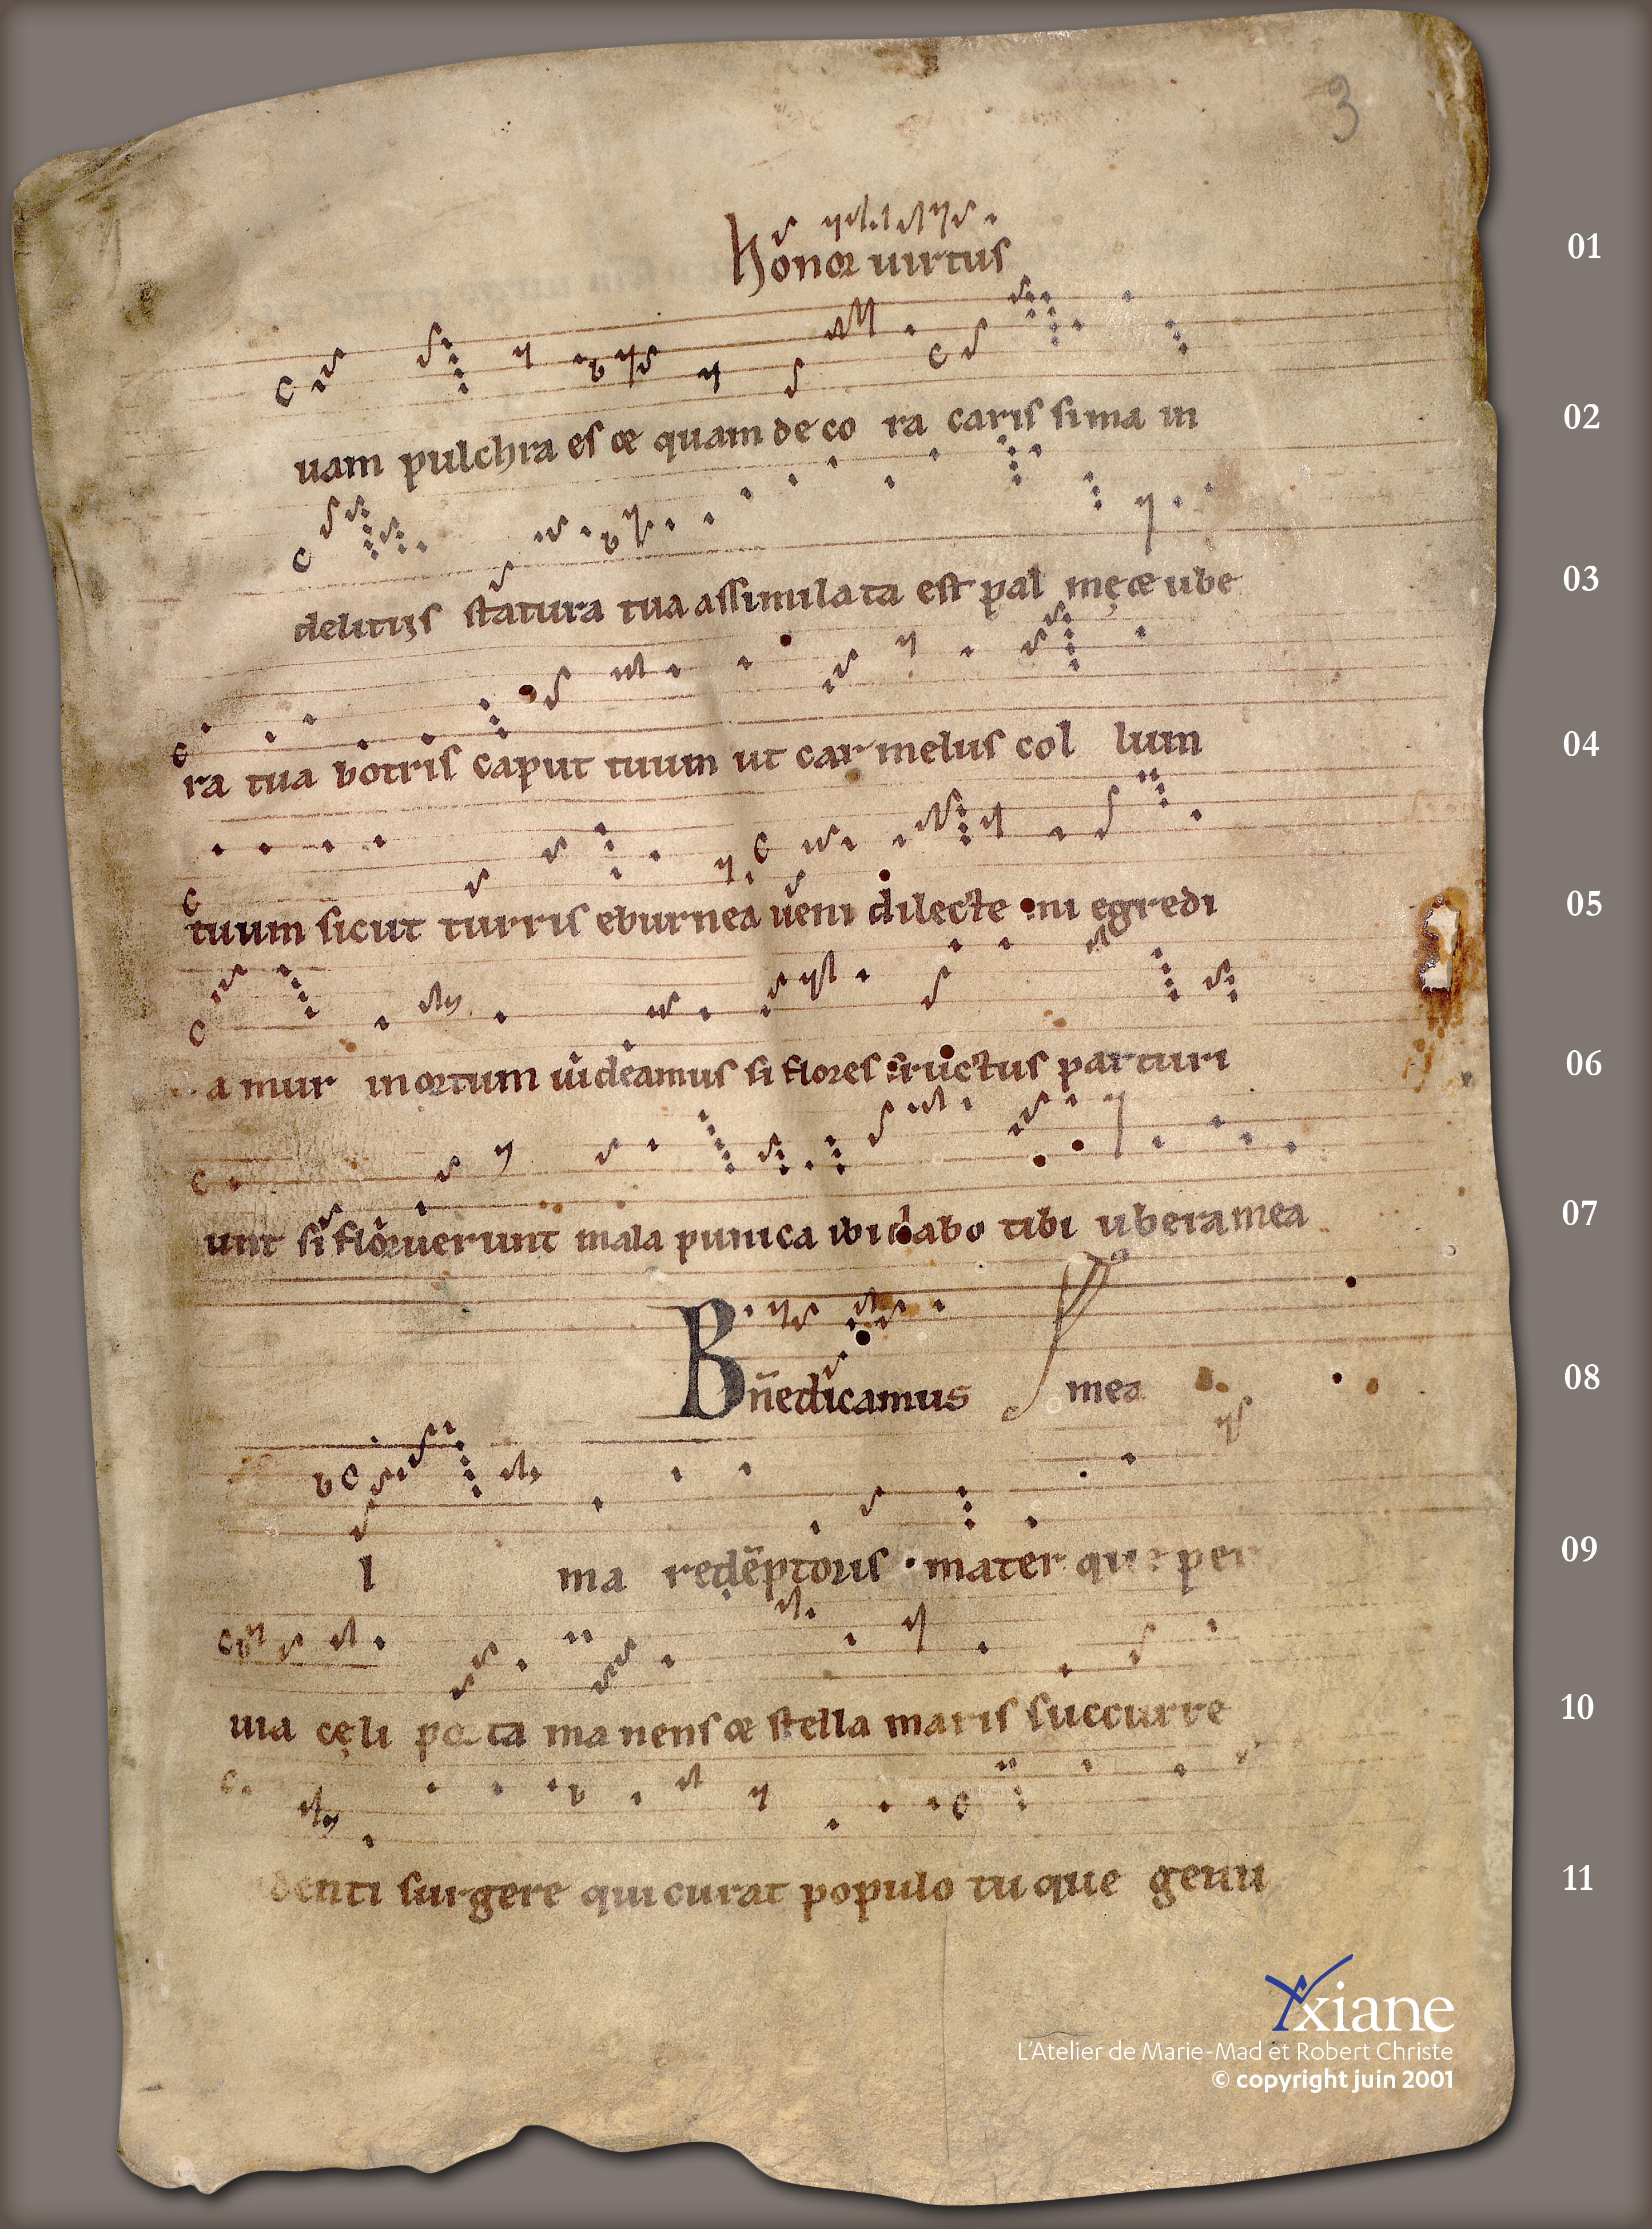 3
01
honor uirtus
02
uam pulchra es & quam deco ra carissima in
03
delitijs statura tua assimilata est pal mę & ube
04
ra tua botris caput tuum ut carmelus col lum
05
tuum sicut turris eburnea ueni dilecte mi egredi
06
amur in ortum uideamus si flores fructus parturi
07
unt si floruerunt mala punica ibi dabo tibi ubera mea
08
Bn̄edicamus mea
09
l ma redēptoris mater que per
10
uia cęli porta manens & stella maris succurre
11
denti surgere qui curat populo tu que genu
Yxiane
L'Atelier de Marie-Mad et Robert Christe
© copyright juin 2001